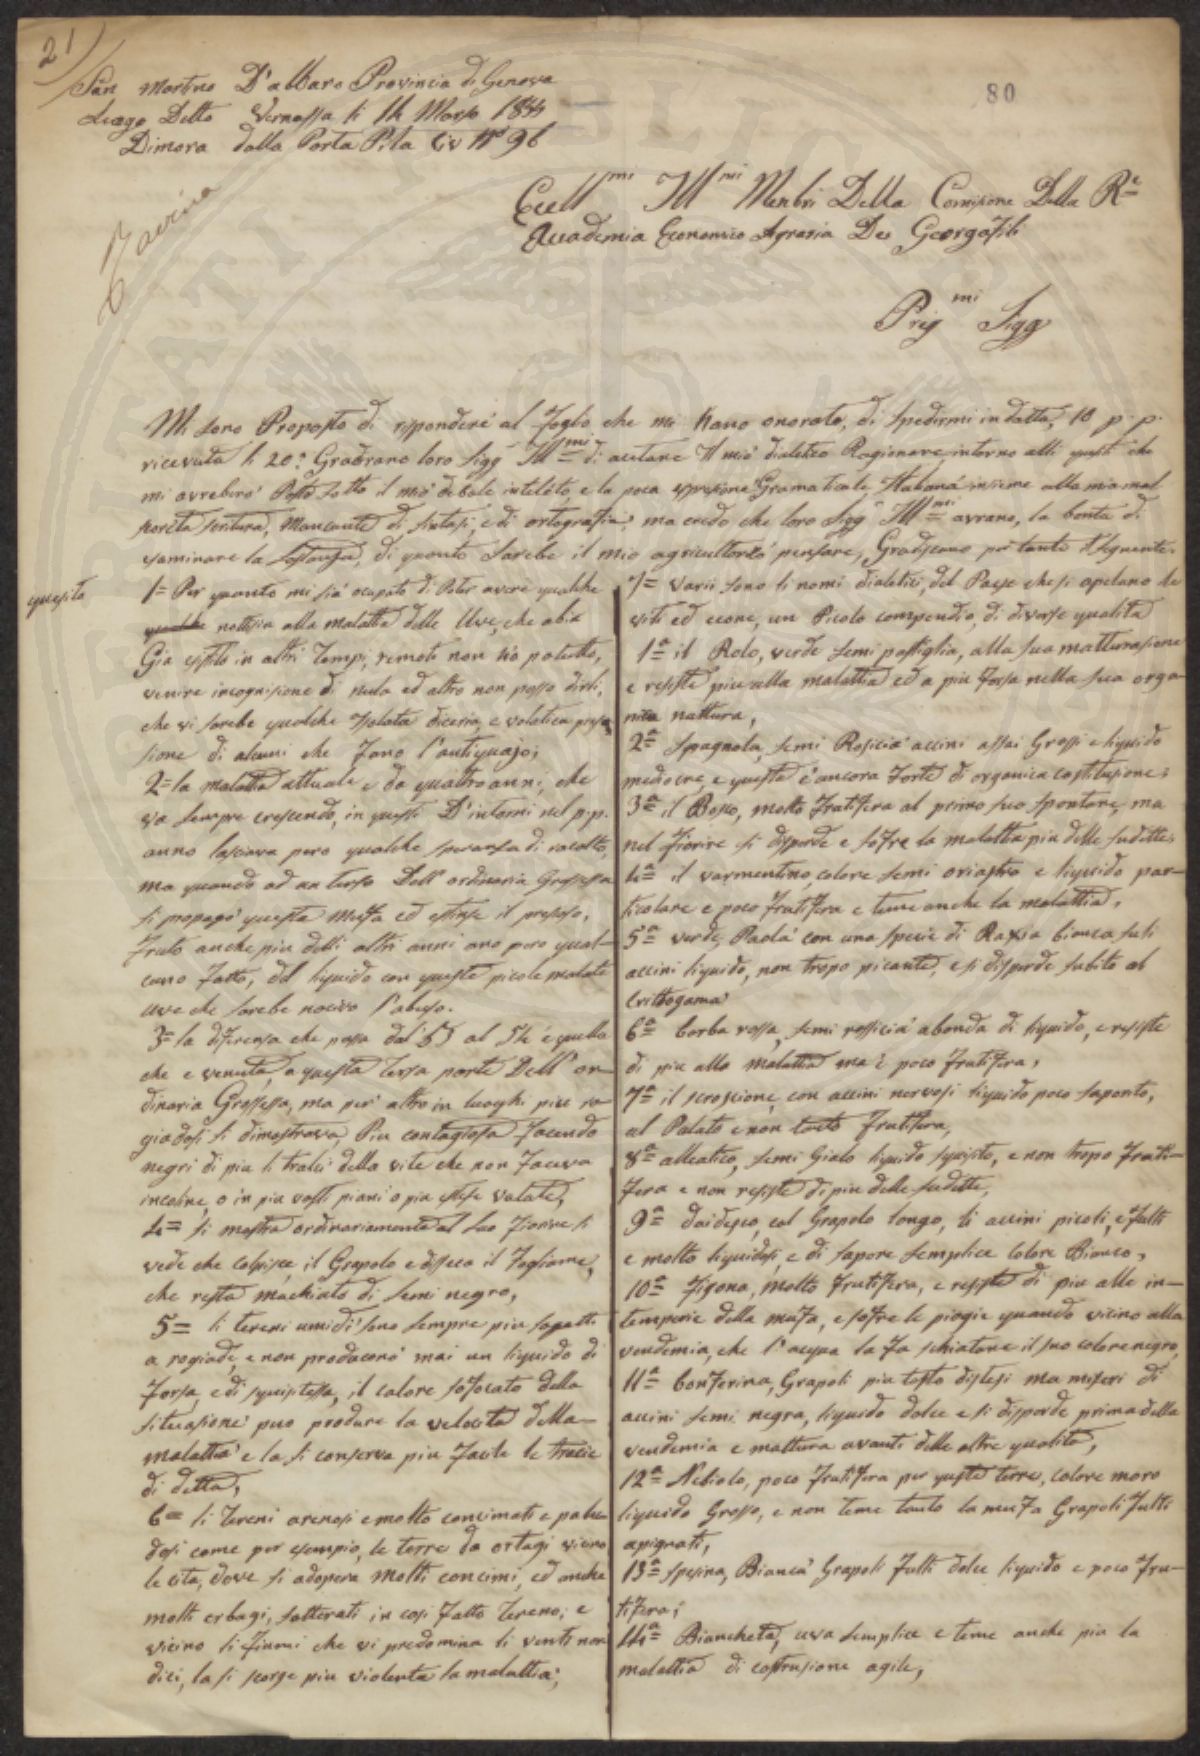 21
80
San Martino D'albaro Provincia di Genova
Luogo Detto Vernassa li 14 Marzo 1855
Dimora dalla Porta Pila Civ N° 96
Eccell^mi Ill^mi Menbri Della Comisione Della R^e
Accademia Economico Agraria Dei Georgofili
Preg^mi Sigg
Mi sono Proposto di rispondere al foglio che mi hano onorato, di spedirmi in datta, 10 p. p.
ricevuta li 20: Gradirano loro Sigg Ill^mi di acetare Il mio dialetico Ragionare, intorno alli questi che
mi avrebero Posto sotto il mio debole inteleto, e la poca espresione Gramaticale Italiana insieme alla mia mal
scritura, Mancante di sintasi, e di ortografia; ma credo che loro Sigg Ill^mi avrano, la bontà di
esaminare la sostanza, di quanto sarebe il mio agricultorio pensare, Gradiscano per tanto Il seguente.
quesito
1= Per quanto mi sia ocupato di Poter avere qualche
nottisia alla malattia delle Uve, che abia
Gia esistito in altri tempi, remoti non hò potutto,
venire in cognisione di nula ed altro non posso dirli,
che vi sarebe qualche isolata diceria, e volatica
sione di alcuni che fano l'antiquajo;
2= la malattia attuale e da quattro anni, che
va sempre crescendo, in questi D'intorni nel p.p.
anno lasciava pero qualche speranza di racolto,
ma quando ad un terso Dell' ordinaria Grossessa
si propagò questa Muffa ed estinse il
fruto anche piu delli altri anni ano pero qual-
cuno fatto, del liquido con queste picole malate
uve che sarebe nocivo l'abuso.
3= la diferensa che passa dal 53 al 54 è quella
che e venuta, a questa tersa parte Dell' or-
dinaria Grossessa, ma per altro in luoghi piu ro-
giadosi si dimostrava, Piu contagiosa facendo
negri di piu li tralci della vite che non faceva
incoline, o in piu vasti piani o piu estese valate,
4= si mostra ordinariamente al suo fiorire si
vede che colpisce, il Grapolo e disseca il fogliame,
che resta machiato di semi negro,
5= li tereni umidi sono sempre piu sogetti
a rogiade, e non producono mai un liquido di
forsa, e di squisitessa, il calore sofocato della
situasione puo produre la velocità della
malattia e la si conserva piu facile le tracie
di detta,
6= li tereni arenosi e molto concimati e palu-
dosi come per esempio, le terre da ortagi vicino
le cità, dove si adopera Molti concimi, ed anche
molti erbagi, sotterati in cosi fatto tereno; e
vicino li fiumi che vi predomina li venti nor-
dici, la si scorge piu violenta la malattia;
7= varii sono li nomi dialetici, del Paese che si apelano le
viti ed econe, un Picolo compendio, di diverse qualità
1^a= il Rolo, verde semi passiglia, alla sua matturasione
e resiste piu alla malattia ed a piu forsa nella sua orga-
nica nattura,
2^a= Spagnola, semi Rosicia accini assai Grossi e liquido
mediocre, e questa è ancora forte di organica costitusione;
3^a= il Bosco, molto fruttifera al primo suo spontare, ma
nel fiorire si disperde e sofre la malattia piu delle sudette;
4^a= il varmentino, colore semi oriastro e liquido par-
ticolare e poco fruttifera e teme anche la malattia,
5^a= verde Paola con una specie di Raxia bianca suli
accini liquido, non tropo picante, e si disperde subito al
Crittogama
6^a= barba rossa, semi rossicia abonda di liquido, e resiste
di piu alla malattia ma è poco fruttifera,
7^a= il scroscione, con accini nervosi liquido poco saporito,
al Palato e non tanto fruttifera,
8^a= alleatico, semi Gialo liquido squisito, e non tropo frutti-
fera e non resiste di piu delle sudette,
9^a= daidesco, col Grapolo longo, li accini picoli, e fulti
e molto liquidosi, e di sapore semplice colore Bianco,
10^a= figona, molto fruttifera, e resiste di piu alle in-
temperie della muffa, e sofre le piogie quando vicino alla
vendemia, che l'acqua la fa schiatare il suo colore negro,
11^a= bonferina, Grapoli piu tosto distesi ma miseri di
accini semi negra, liquido dolce e si disperde prima della
vendemia e mattura avanti delle altre qualità,
12^a= Nebiolo, poco fruttifera per queste terre, colore moro
liquido Grosso, e non teme tanto la muffa Grapoli fulti
apignati,
13^a= spesina, Bianca Grapoli fulti dolce liquido e poco fru-
tifera;
14^a= Biancheta, uva semplice e teme anche piu la
malattia di costrusione agile,